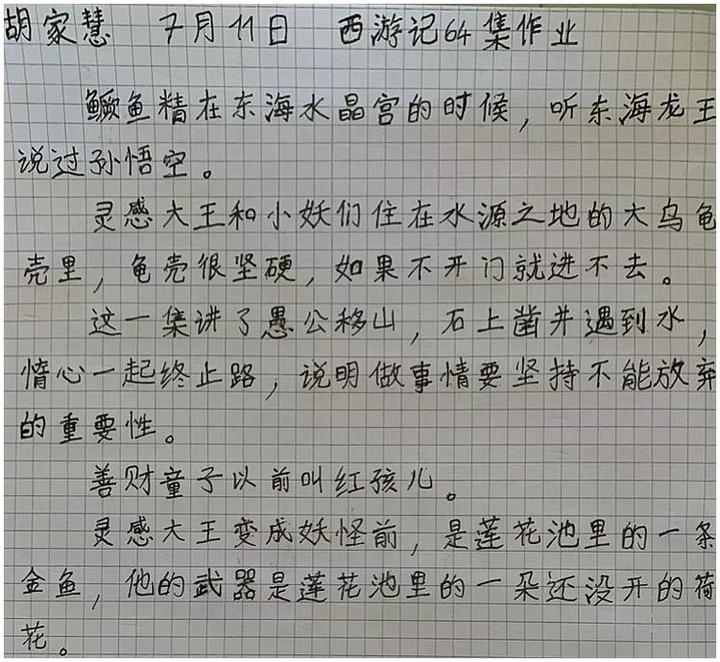 胡家慧 7月11日 西游记64集作业
鳜鱼精在东海水晶宫的时候，听东海龙王
说过孙悟空。
灵感大王和小妖们住在水源之地的大乌龟
壳里，龟壳很坚硬，如果不开门就进不去。
这一集讲了愚公移山，石上凿井遇到水，
惰心一起终止路，说明做事情要坚持不能放弃
的重要性。
善财童子以前叫红孩儿。
灵感大王变成妖怪前，是莲花池里的一条
金鱼，他的武器是莲花池里的一朵还没开的荷
花。